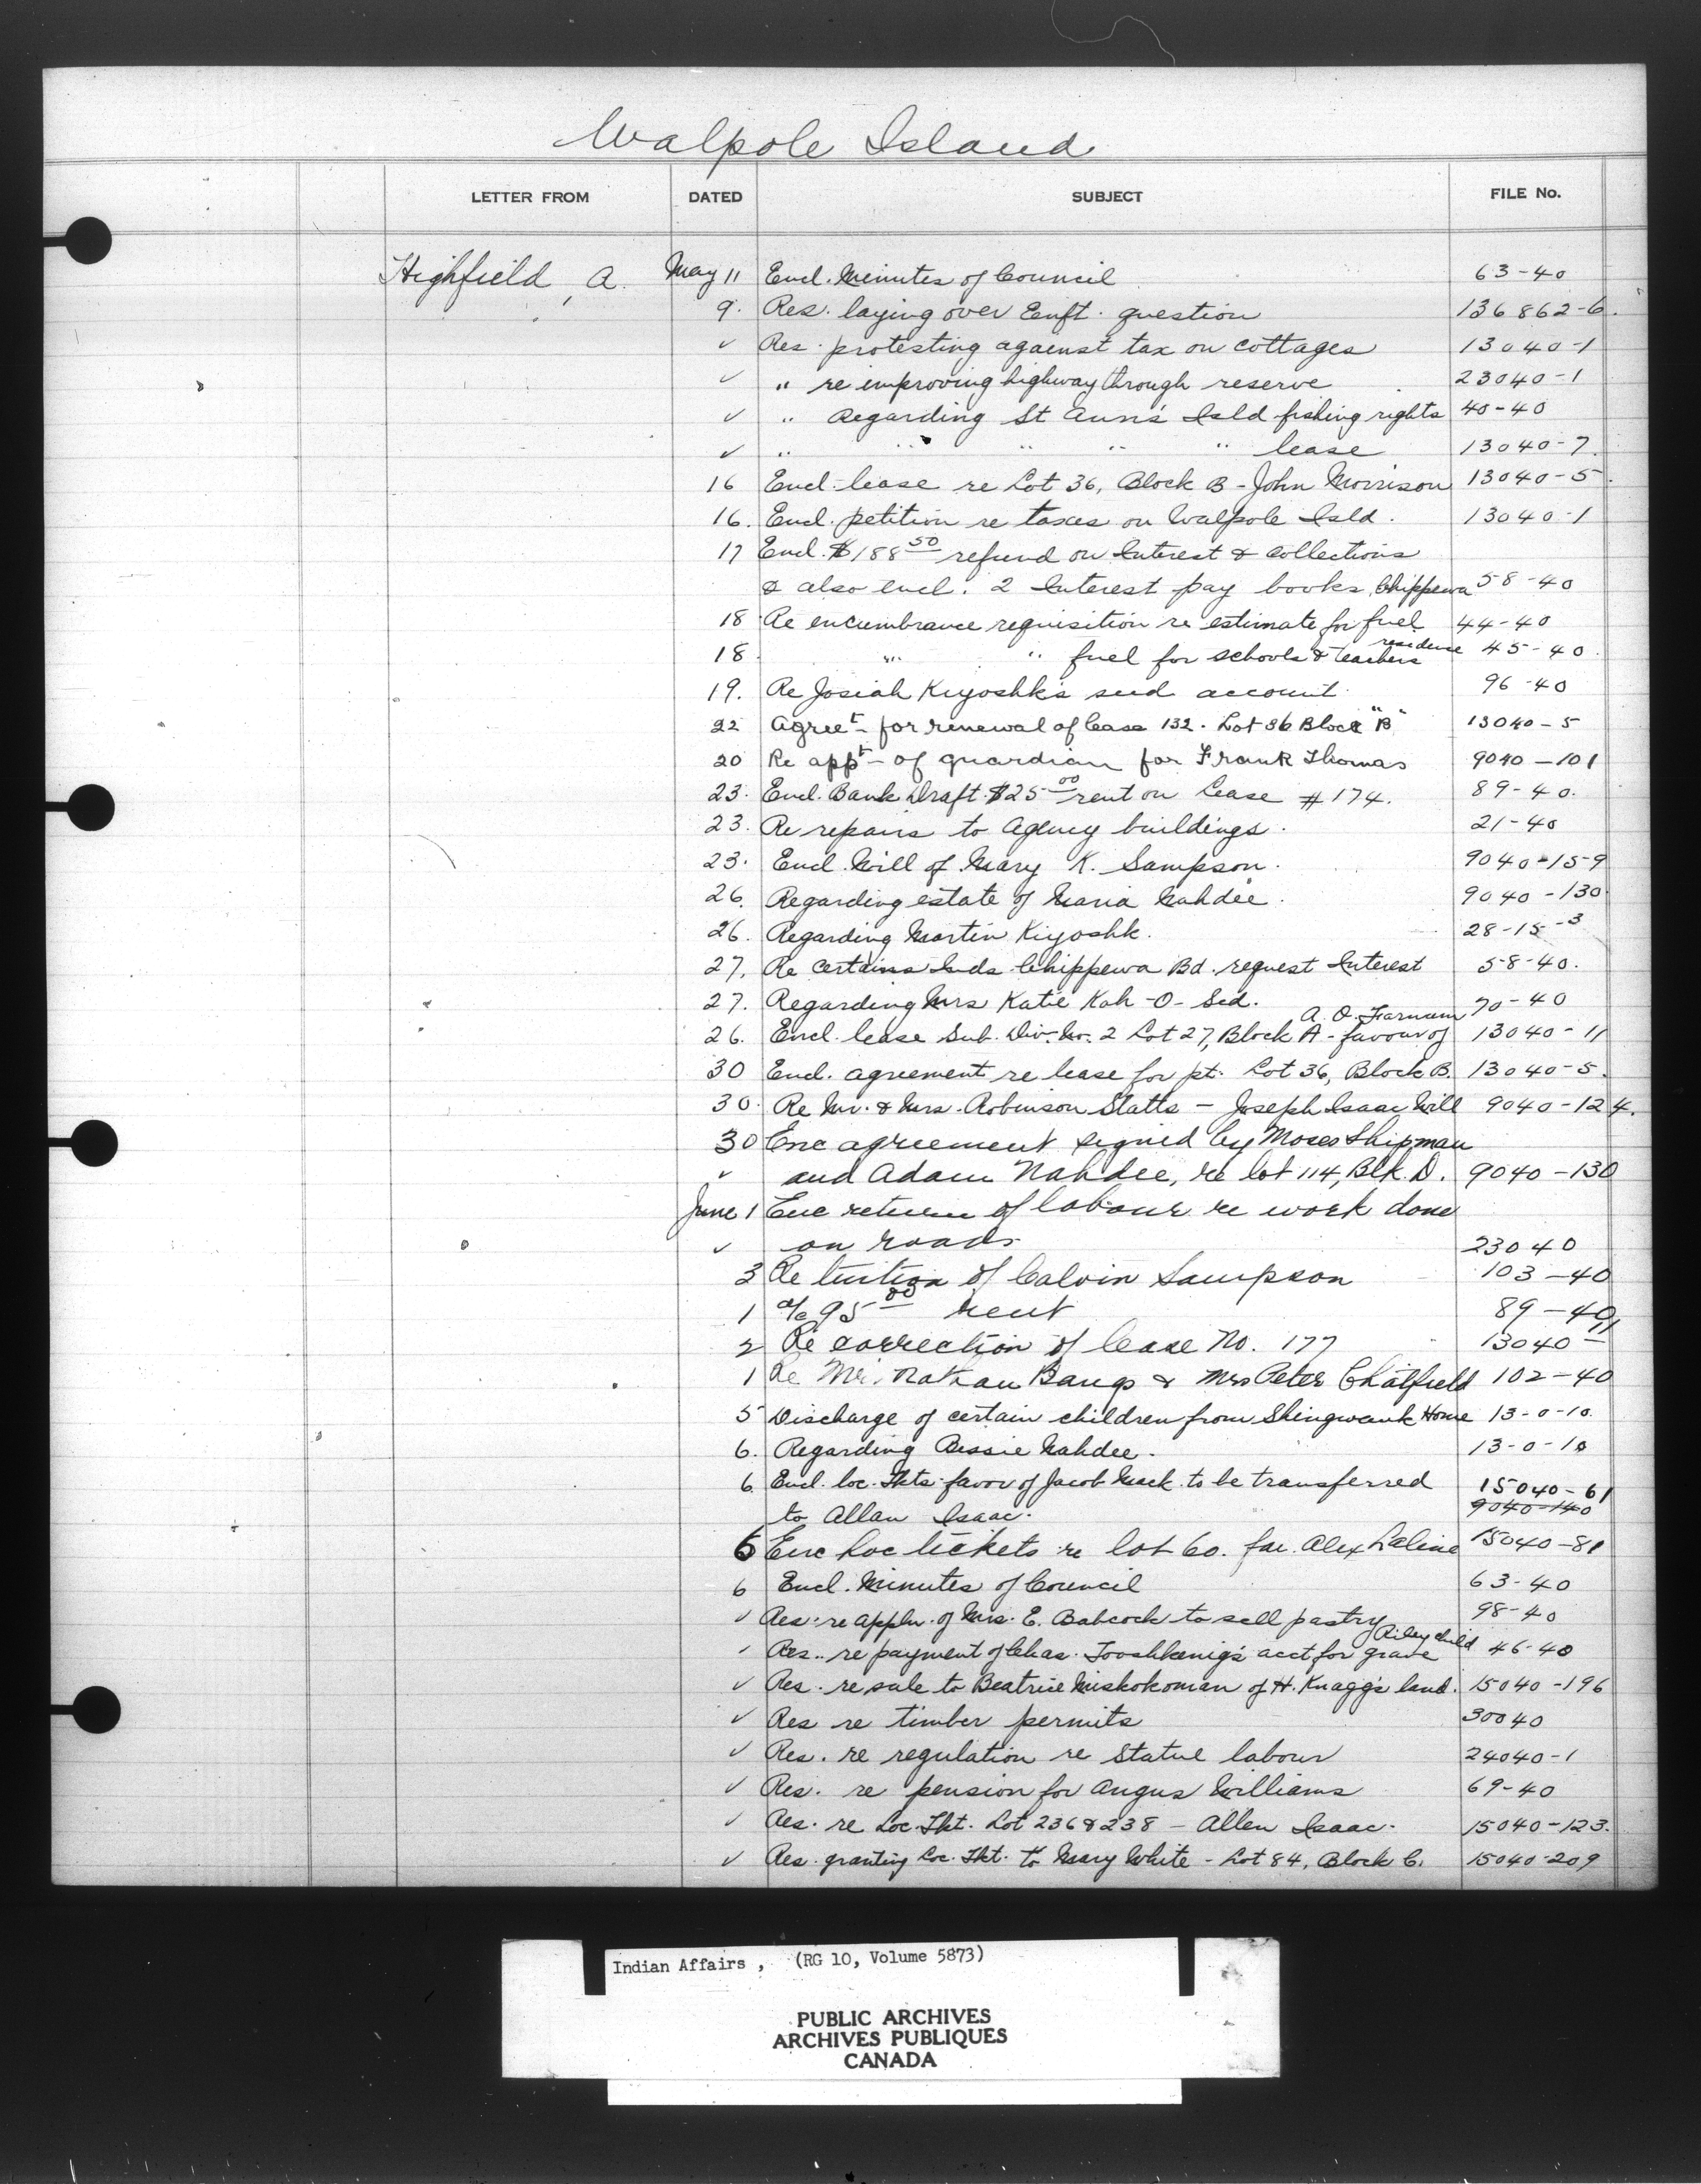 Walpole Island
LETTER FROM DATED SUBJECT FILE No.
Highfield, A. May 11 Encl. Minutes of Council 63-40
9. Res. laying over Enft. question 136862-6.
✓ Res. protesting against tax on cottages 13040-1
✓ " re improving highway through reserve 23040-1
✓ " Regarding St Ann's Isld fishing rights 40-40
✓ " " " " " lease 13040-7.
16 Encl. lease re Lot 36, Block B - John Morrison 13040-5.
16. Encl. petition re taxes on Walpole Isld. 13040-1
17 Encl. $188.50 refund on Interest & collections
& also encl. 2 Interest pay books Chippewa 58-40
18 Re encumbrance requisition re estimate for fuel 44-40
18 " " fuel for schools & teachers residence 45-40.
19. Re Josiah Kiyoshk's seed account. 96-40
22 Agreet- for renewal of lease 132. Lot 36 Block "B" 13040-5
20 Re appt- of guardian for Frank Thomas 9040-101
23. Encl. Bank Draft $25.00 rent on Lease #174. 89-40.
23. Re repairs to Agency buildings. 21-40
23. Encl. Will of Mary K. Sampson. 9040-159
26. Regarding estate of Maria Nahdee. 9040-130.
26. Regarding Martin Kiyoshk. 28-15-3
27. Re certains Inds Chippewa Bd. request Interest 58-40.
27. Regarding Mrs Katie Kah-O-Sed. 70-40
26. Encl. lease Sub. Div. No. 2 Lot 27, Block A - favour of A. O. Farnum 13040-11
30 Encl. agreement re lease for pt. Lot 36, Block B. 13040-5.
30. Re Mr. & Mrs. Robinson Statts - Joseph Isaac Will 9040-124.
30 Enc agreement signed by Moses Shipman
✓ and Adam Nahdee, re lot 114, Blk. D. 9040-130
June 1 Enc return of labour re work done
✓ on roads 23040
3 Re tuition of Calvin Sampson 103-40
1 a/c 95.00 rent 89-40
2 Re correction of lease No. 177 13040-11
1 Re Mr. Nathan Bangs & Mrs Peter Chatfield 102-40
5 Discharge of certain children from Shingwauk Home 13-0-10.
6. Regarding Bessie Nahdee. 13-0-10
6 Encl. loc. Tkts. favor of Jacob Mack to be transferred 15040-61
to Allan Isaac. 9040-140
6 Enc Loc tickets re lot 60. for. Alex 15040-81
6 Encl. Minutes of Council 63-40
✓ Res. re appln. of Mrs. E. Babcock to sell pastry 98-40
✓ Res. re payment of Chas. Tooshkenig's acct for grave Riley child 46-40
✓ Res. re sale to Beatrice Miskokoman of H. Knagg's land. 15040-196
✓ Res re timber permits 30040
✓ Res. re regulation re Statue labour 24040-1
✓ Res. re pension for Angus Williams 69-40
✓ Res. re Loc. Tkt. Lot 236 & 238 - Allen Isaac. 15040-123.
✓ Res. granting Loc. Tkt. to Mary White - Lot 84, Block C. 15040-209
Indian Affairs , (RG 10, Volume 5873)
PUBLIC ARCHIVES
ARCHIVES PUBLIQUES
CANADA